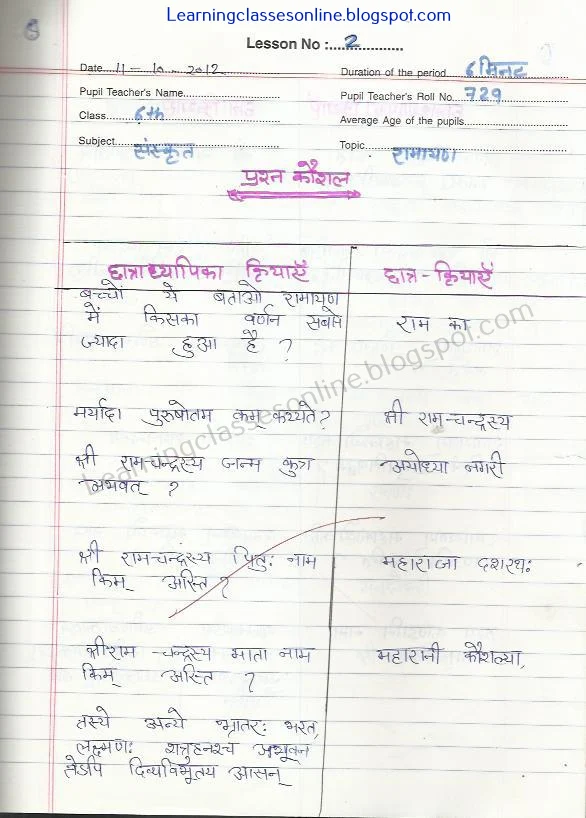 Learningclassesonline.blogspot.com
Lesson No :.2
Date 11-10-2012 Duration of the period 6 मिनट
Pupil Teacher's Name Pupil Teacher's Roll No. 729
Class 6th Average Age of the pupils
Subject संस्कृत Topic रामायण
प्रश्न कौशल
छात्राध्यापिका क्रियाएँ छात्र - क्रियाएँ
बच्चों ये बताओ रामायण
में किसका वर्णन सबसे राम का
ज्यादा हुआ है ?
मर्यादा पुरुषोतम कम् कथ्यते? श्री राम-चन्द्रस्य
श्री राम-चन्द्रस्य जन्म कुत्र अयोध्या नगरी
अभवत् ?
श्री राम-चन्द्रस्य पितुः नाम महाराजा दशरथः
किम् अस्ति ?
श्रीराम -चन्द्रस्य माता नाम महारानी कौशल्या,
किम् अस्ति ?
तस्ये अन्ये भ्रातरः भरत,
लक्ष्मणः शत्रुहनश्च अभूवन
तेऽपि दिव्यविभूतय आसन्
Learningclassesonline.blogspot.com